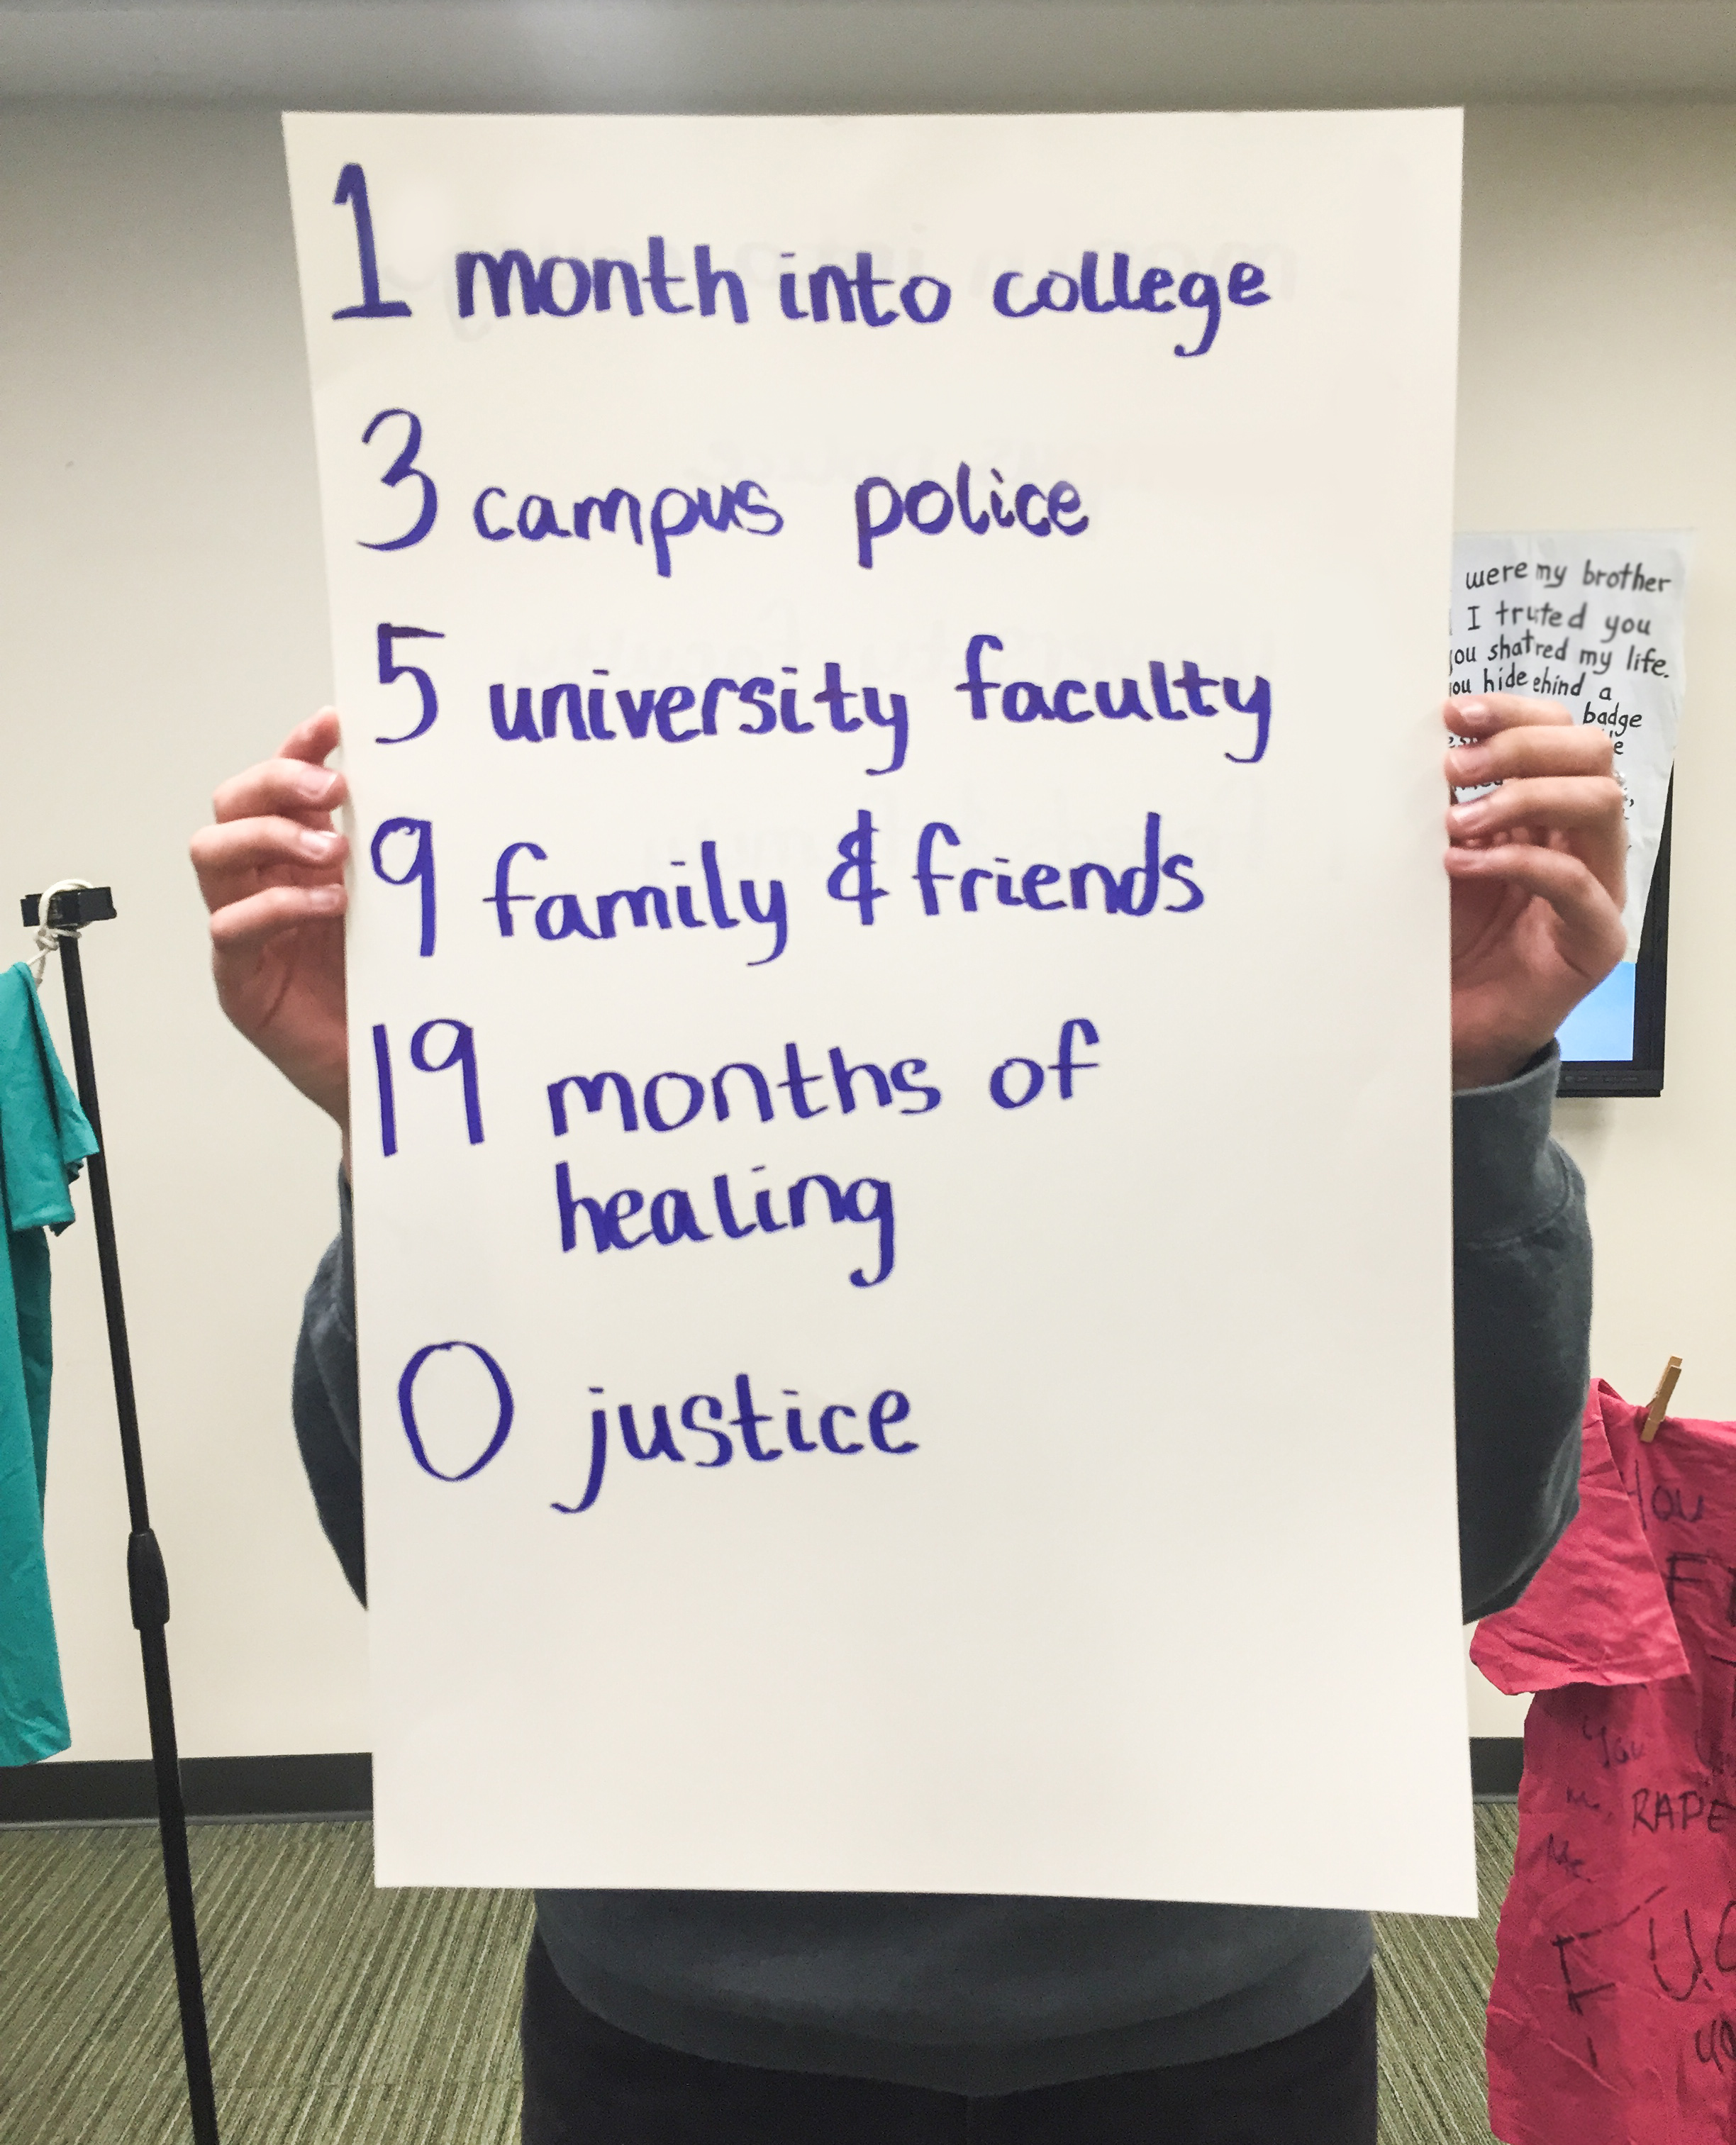 1 month into college
3 campus police
5 university faculty
9 family & friends
19 months of
healing
0 justice
were my brother
I truted you
ou shatred my life.
ou hide ehind a
badge
You
RAPE
Me